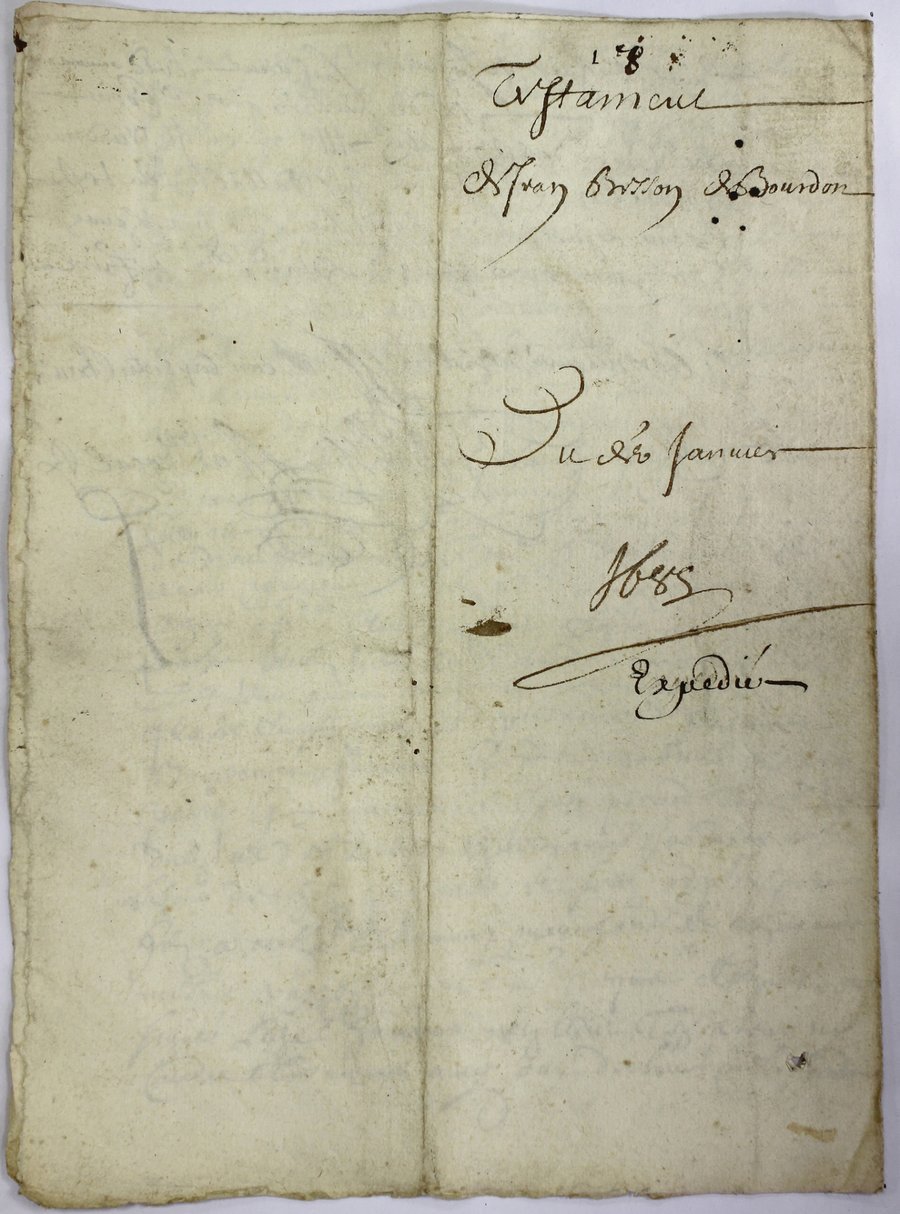 Testament
de Jean Besson de Bourdon
Du Janvier
1685
Expedié